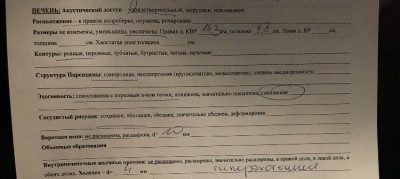 ПЕЧЕНЬ: Акустический доступ - удовлетворительный, затруднен, невозможен.
Расположение - в правом подреберье, опущена, ротирована
Размеры не изменены, уменьшены, увеличены Правая д. КВР см, толщина см. Левая д. ВР см,
толщина см. Хвостатая доля толщина см.
Контуры: ровная, неровная, зубчатые, бугристые, четкие, нечеткие
Структура Паренхимы: однородная, неоднородная (крупноочагово, мелкоочагово), степень неоднородности
Эхогенность: сопоставима с корковым в-вом почки, повышена, значительно повышена, снижена
Сосудистый рисунок: сохранен, обогащен, обеднен, значительно обеднен, деформирован
Воротная вена: не расширена, расширена, d- 10 мм
Объемные образования
Внутрипеченочные желчные протоки: не расширены, расширены, значительно расширены, в правой доле, в левой доле, в
обеих долях. Холедох - d= 4 мм